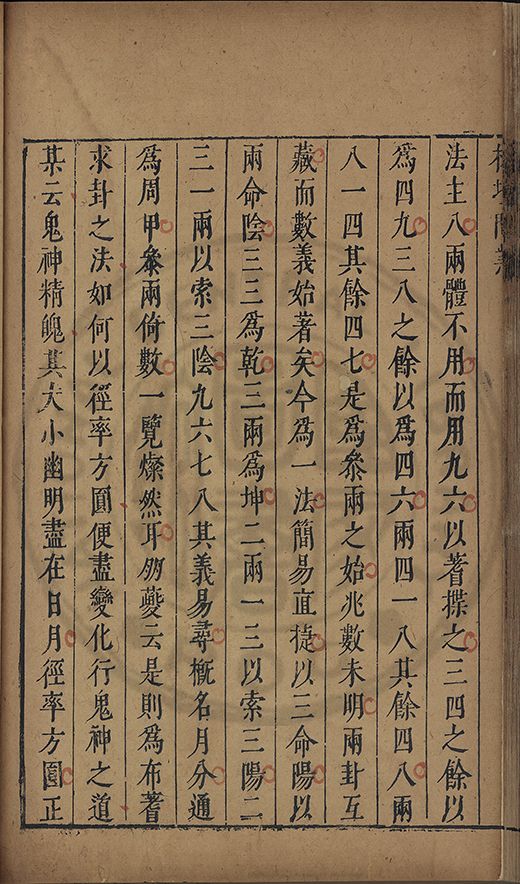 榕壇問業
法主八兩體不用而用九六以蓍揲之三四之餘以
為四九三八之餘以為四六兩四一八其餘四八兩
八一四其餘四七是為參兩之始兆數未明兩卦互
藏而數義始著矣今為一法簡易直㨗以三命陽以
兩命陰三三為乾三兩為坤二兩一三以索三陽二
三一兩以索三陰九六七八其義易尋槪名月分通
為周甲參兩倚數一覽燦然耳朋夔云是則為布蓍
求卦之法如何以徑率方圓便盡變化行鬼神之道
某云鬼神精魄其大小幽明盡在日月徑率方圓正